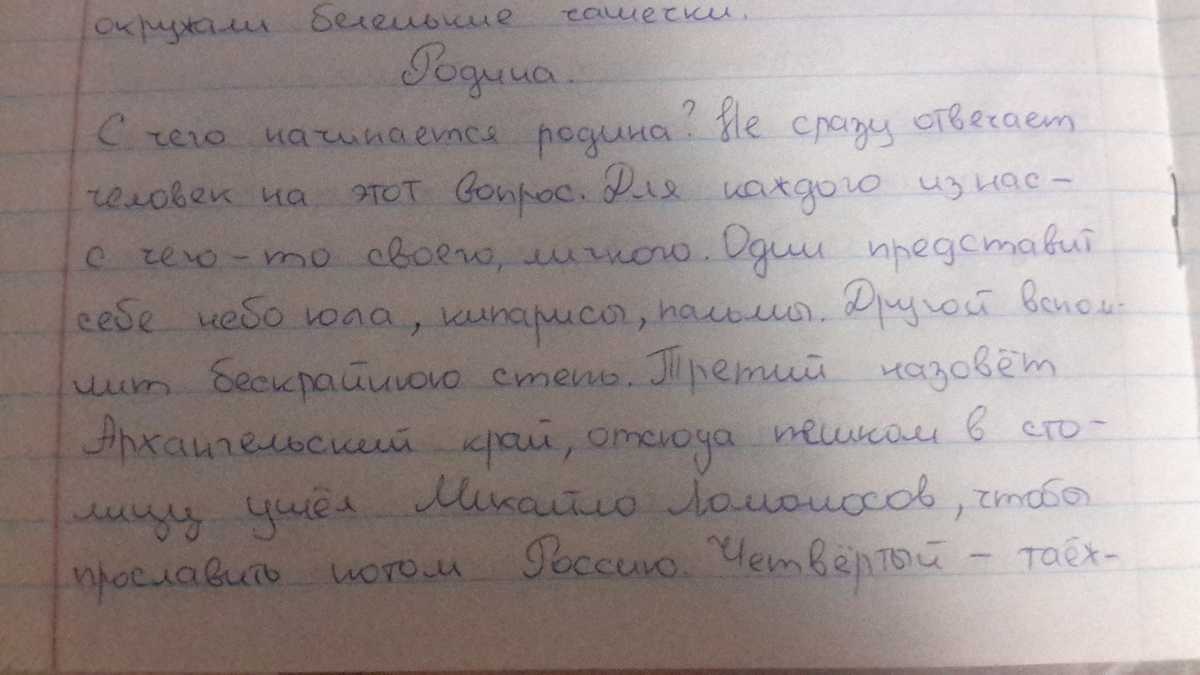 окружали беленькие чашечки.
Родина.
С чего начинается родина? Не сразу отвечает
человек на этот вопрос. Для каждого из нас -
с чего-то своего, личного. Один представит
себе небо юга, кипарисы, пальмы. Другой вспом-
нит бескрайнюю степь. Третий назовёт
Архангельский край, отсюда пешком в сто-
лицу ушёл Микайло Ломоносов, чтобы
прославить потом Россию. Четвёртый - таёж-